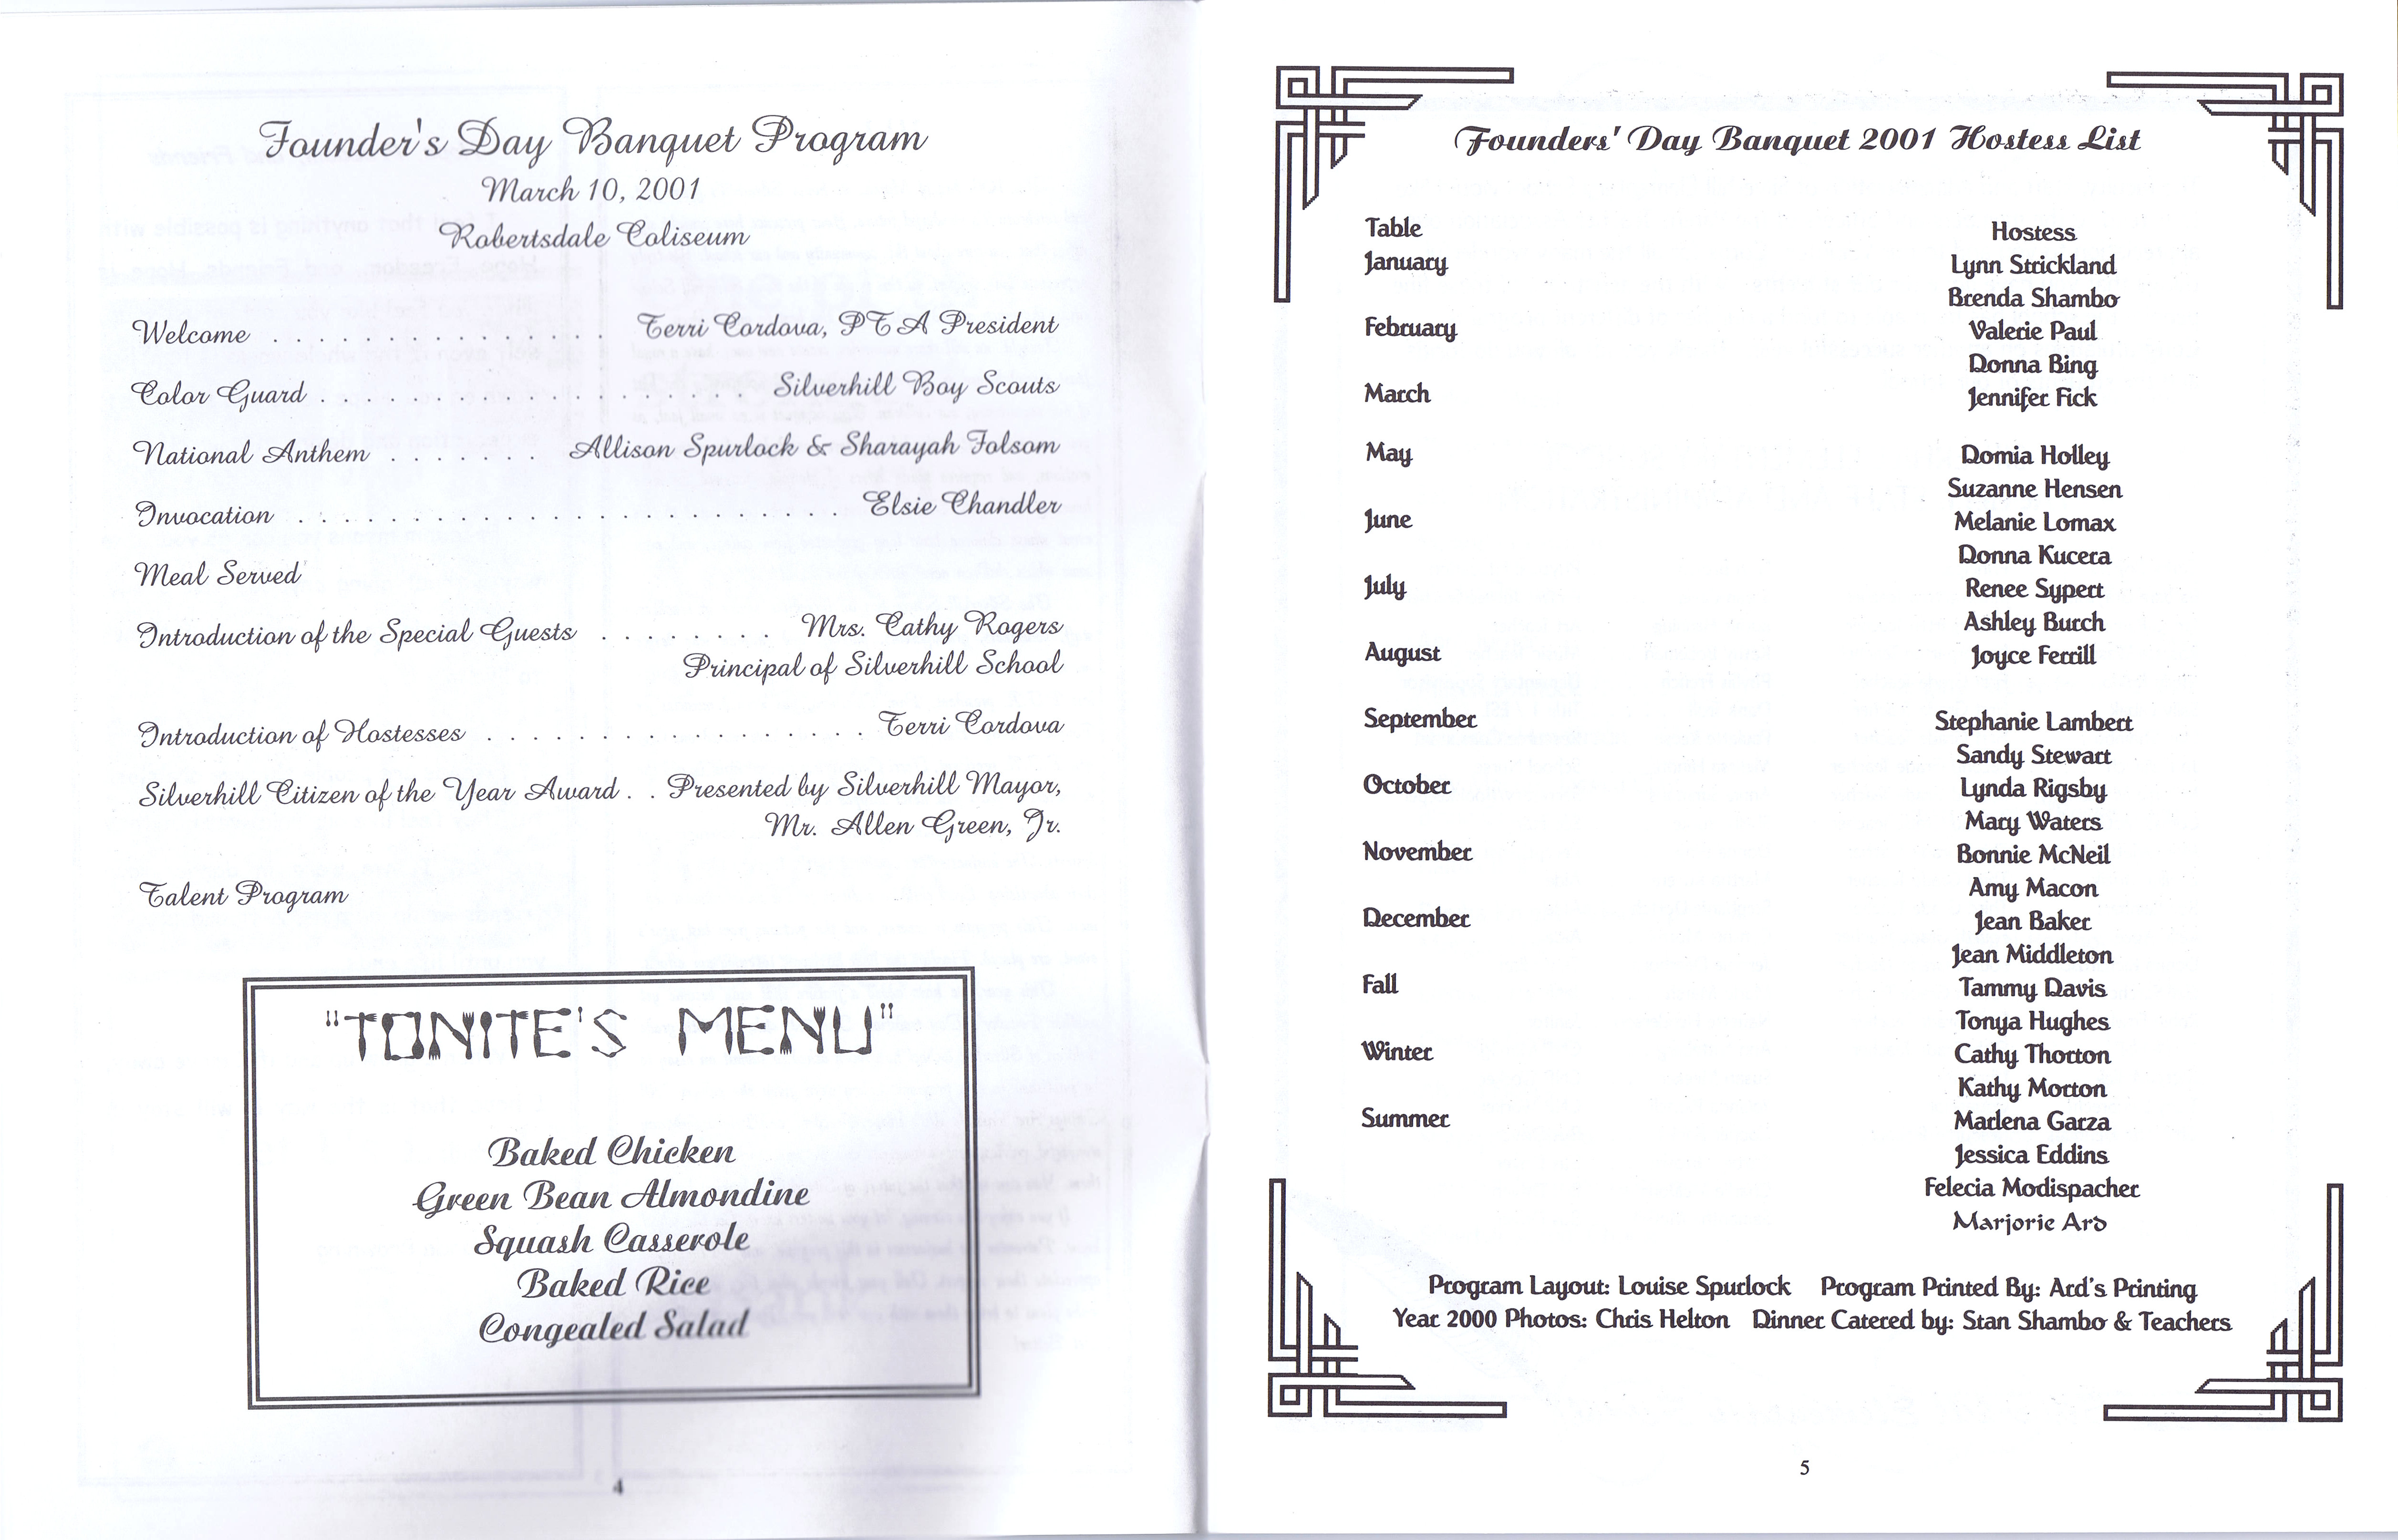 Founder's Day Banquet Program
March 10, 2001
Robertsdale Coliseum
Welcome . . . . . . . . . . . . . . . . . Terri Cordova, PTA President
Color Guard . . . . . . . . . . . . . . . . . . . . Silverhill Boy Scouts
National Anthem . . . . . . . Allison Spurlock & Sharayah Folsom
Invocation . . . . . . . . . . . . . . . . . . . . . . . . . Elsie Chandler
Meal Served
Introduction of the Special Guests . . . . . . . . Mrs. Cathy Rogers
Principal of Silverhill School
Introduction of Hostesses . . . . . . . . . . . . . . . . . Terri Cordova
Silverhill Citizen of the Year Award . . Presented by Silverhill Mayor,
Mr. Allen Green, Jr.
Talent Program
"TONITE'S MENU"
Baked Chicken
Green Bean Almondine
Squash Casserole
Baked Rice
Congealed Salad
4
Founders' Day Banquet 2001 Hostess List
Table Hostess
January Lynn Strickland
Brenda Shambo
February Valerie Paul
Donna Bing
March Jennifer Fick
May Domia Holley
Suzanne Hensen
June Melanie Lomax
Donna Kucera
July Renee Sypert
Ashley Burch
August Joyce Ferrill
September Stephanie Lambert
Sandy Stewart
October Lynda Rigsby
Mary Waters
November Bonnie McNeil
Amy Macon
December Jean Baker
Jean Middleton
Fall Tammy Davis
Tonya Hughes
Winter Cathy Thorton
Kathy Morton
Summer Marlena Garza
Jessica Eddins
Felecia Modispacher
Marjorie Ard
Program Layout: Louise Spurlock Program Printed By: Ard's Printing
Year 2000 Photos: Chris Helton Dinner Catered by: Stan Shambo & Teachers
5